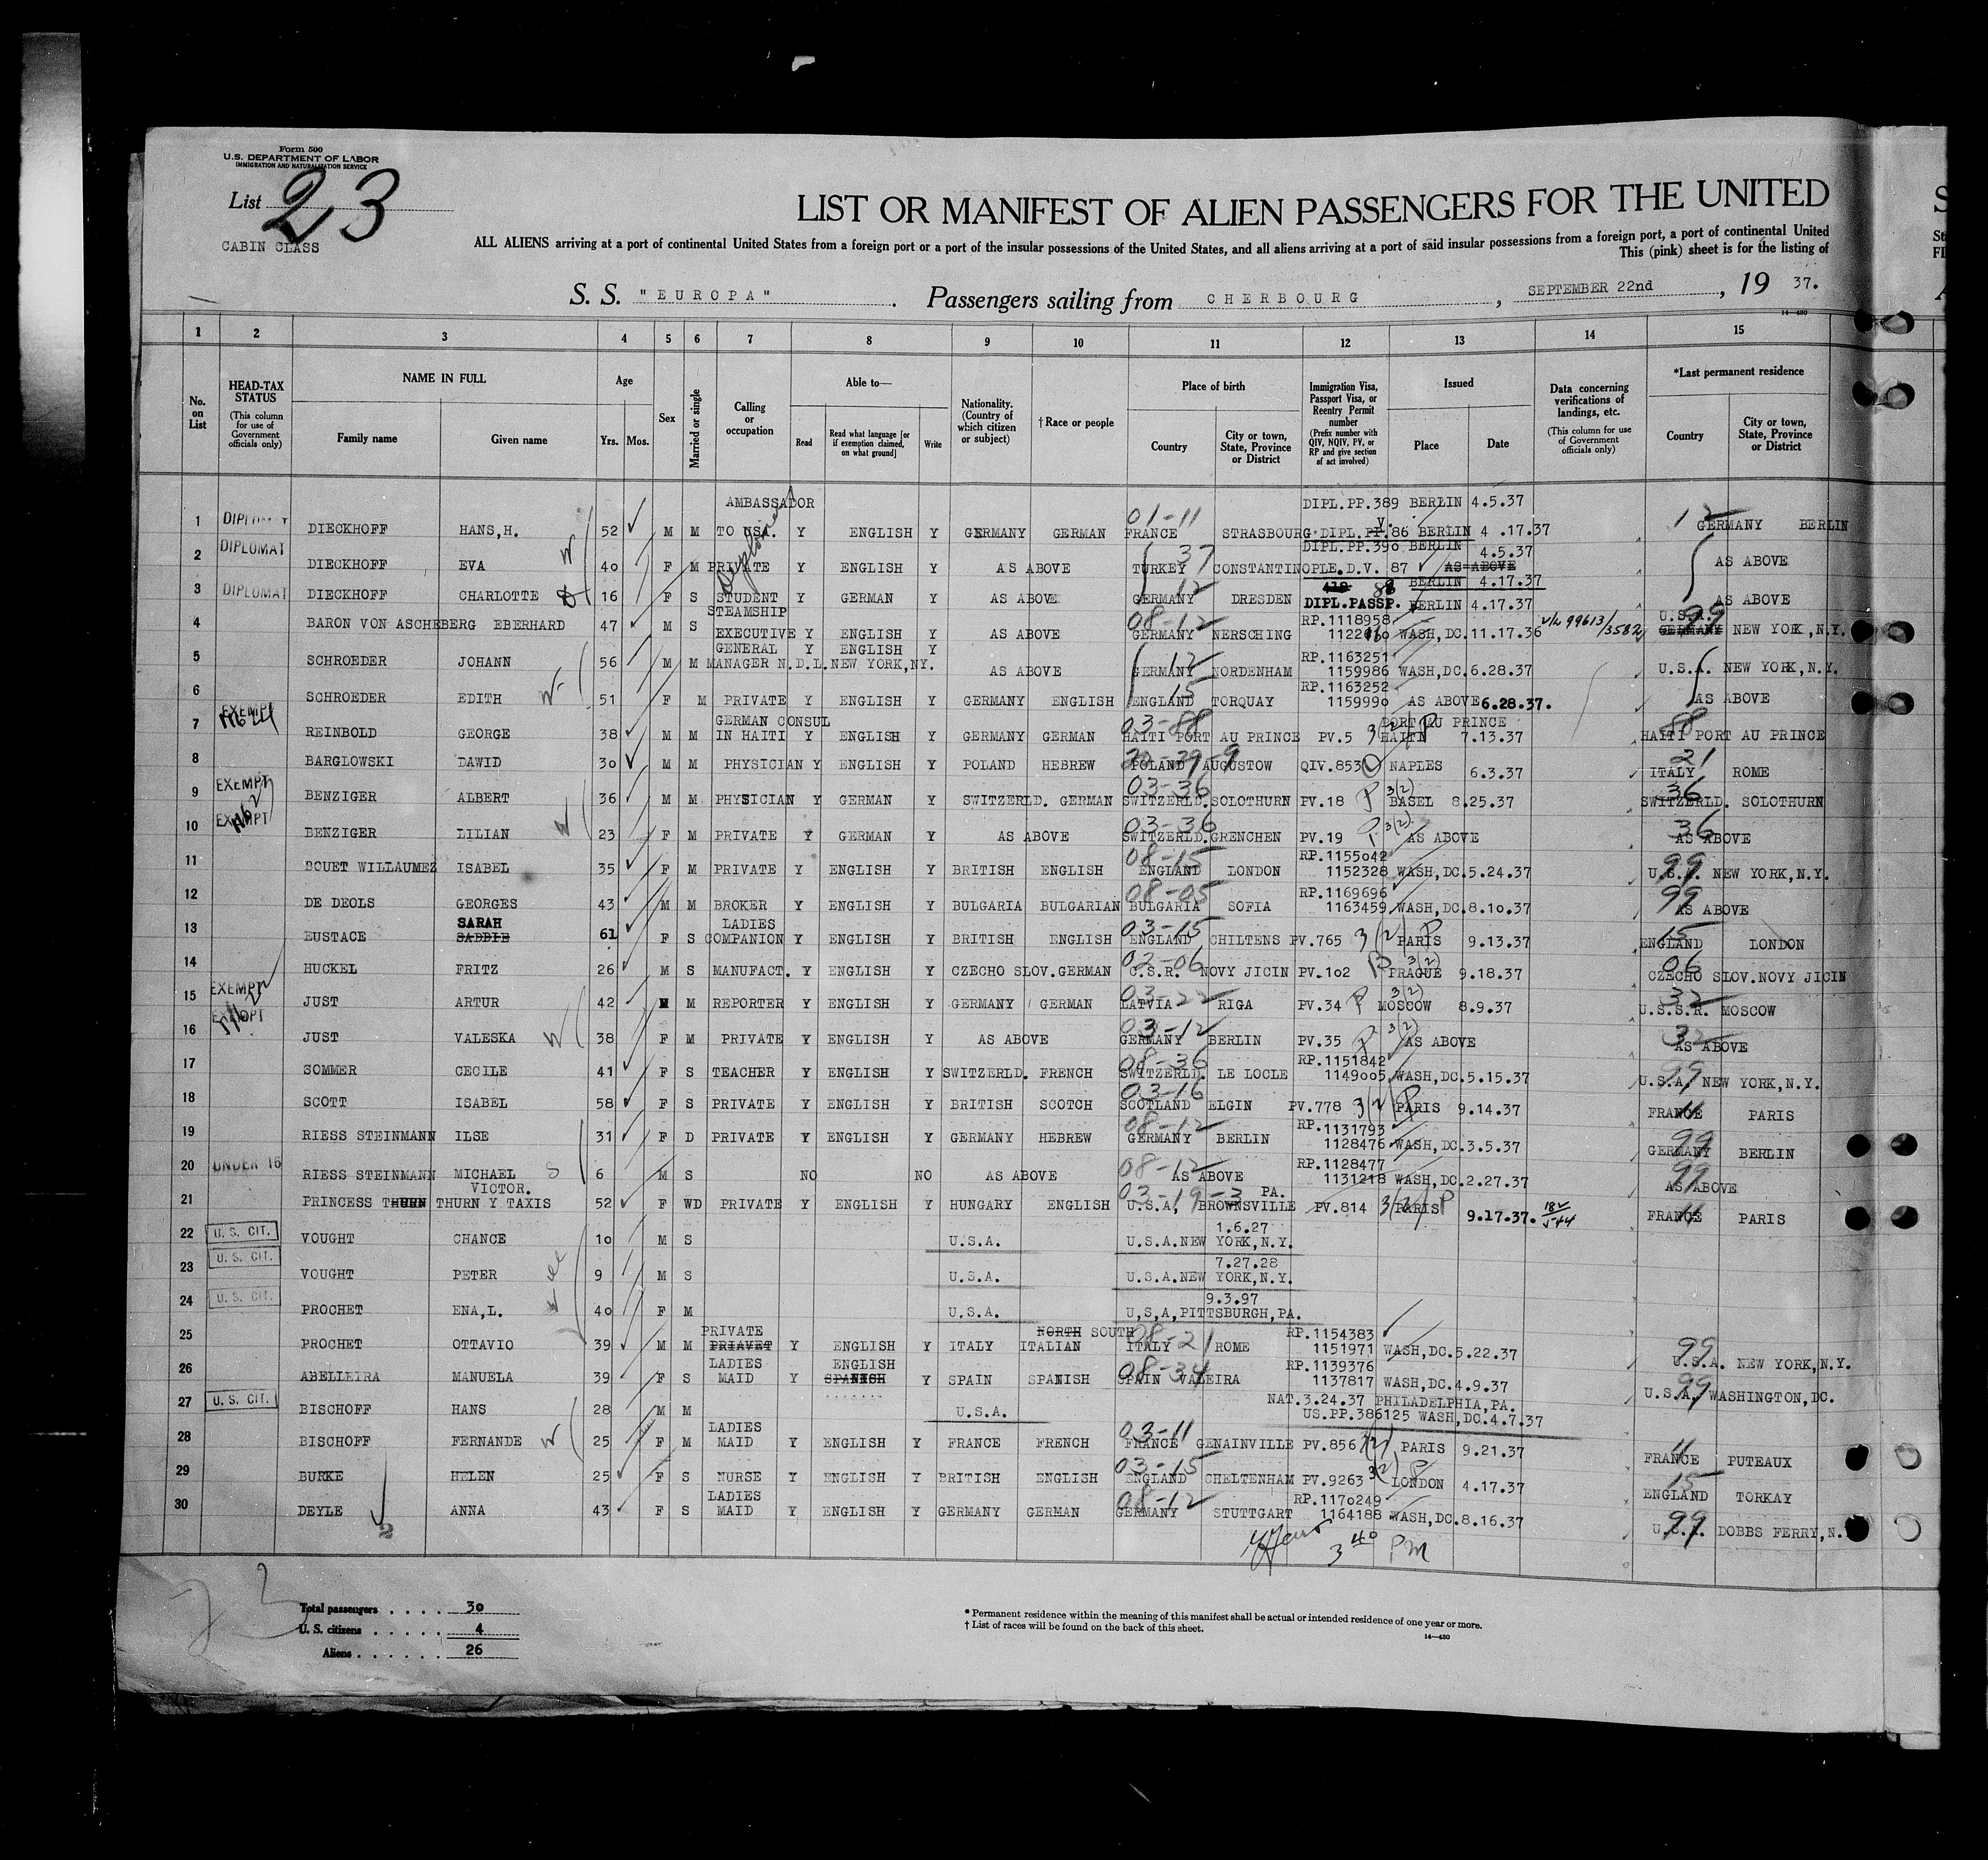 Form 500
U.S. DEPARTMENT OF LABOR
IMMIGRATION AND NATURALIZATION SERVICE
List 23
CABIN CLASS
LIST OR MANIFEST OF ALIEN PASSENGERS FOR THE UNITED
ALL ALIENS arriving at a port of continental United States from a foreign port or a port of the insular possessions of the United States, and all aliens arriving at a port of said insular possessions from a foreign port, a port of continental United
This (pink) sheet is for the listing of
S. S. "EUROPA" . Passengers sailing from CHERBOURG , SEPTEMBER 22nd , 19 37.
14—430
1 2 3 4 5 6 7 8 9 10 11 12 13 14 15
No. on List
HEAD-TAX STATUS
(This column for use of Government officials only)
NAME IN FULL
Family name Given name
Age
Yrs. Mos.
Sex
Married or single
Calling or occupation
Able to—
Read
Read what language [or if exemption claimed, on what ground]
Write
Nationality. (Country of which citizen or subject)
† Race or people
Place of birth
Country
City or town, State, Province or District
Immigration Visa, Passport Visa, or Reentry Permit number
(Prefix number with QIV, NQIV, PV, or RP and give section of act involved)
Issued
Place Date
Data concerning verifications of landings, etc.
(This column for use of Government officials only)
*Last permanent residence
Country
City or town, State, Province or District
AMBASSADOR DIPL.PP.389 BERLIN 4.5.37
1 DIPLOMAT DIECKHOFF HANS,H. 52 M M TO USA. Y ENGLISH Y GERMANY GERMAN 01-11 FRANCE STRASBOURG DIPL.PP.86 V. BERLIN 4 .17.37 12 GERMANY BERLIN
DIPL.PP.390 BERLIN 4.5.37
2 DIPLOMAT DIECKHOFF EVA W 40 F M PRIVATE Y ENGLISH Y AS ABOVE 37 TURKEY CONSTANTINOPLE.D.V. 87 AS ABOVE AS ABOVE
BERLIN 4.17.37
3 DIPLOMAT DIECKHOFF CHARLOTTE D 16 F S STUDENT Y GERMAN Y AS ABOVE 12 GERMANY DRESDEN 88 DIPL.PASSP. BERLIN 4.17.37 AS ABOVE
4 BARON VON ASCHEBERG EBERHARD 47 M S STEAMSHIP EXECUTIVE Y ENGLISH Y AS ABOVE 08-12 GERMANY NERSCHING RP.1118958 WASH,DC.11.17.36 V/L 99613/3582 U.S.A. 99 GERMANY NEW YORK,N.Y.
5 SCHROEDER JOHANN 56 M M GENERAL MANAGER N.D.L.NEW YORK,NY. Y ENGLISH Y AS ABOVE 12 GERMANY NORDENHAM RP.1163251 1159986 WASH,DC.6.28.37 U.S.A. NEW YORK,N.Y.
6 SCHROEDER EDITH W 51 F M PRIVATE Y ENGLISH Y GERMANY ENGLISH 15 ENGLAND TORQUAY RP.1163252 1159990 AS ABOVE 6.28.37. AS ABOVE
7 EXEMPT REINBOLD GEORGE 38 M M GERMAN CONSUL IN HAITI Y ENGLISH Y GERMANY GERMAN 03-88 HAITI PORT AU PRINCE PV.5 3(2) P PORT AU PRINCE HAITI 7.13.37 88 HAITI PORT AU PRINCE
8 BARGLOWSKI DAWID 30 M M PHYSICIAN Y ENGLISH Y POLAND HEBREW 20-29-9 POLAND AUGUSTOW QIV.853 NAPLES 6.3.37 21 ITALY ROME
9 EXEMPT BENZIGER ALBERT 36 M M PHYSICIAN Y GERMAN Y SWITZERLD. GERMAN 03-36 SWITZERLD. SOLOTHURN PV.18 P 3(2) BASEL 8.25.37 36 SWITZERLD. SOLOTHURN
10 EXEMPT BENZIGER LILIAN W 23 F M PRIVATE Y GERMAN Y AS ABOVE 03-36 SWITZERLD. GRENCHEN PV.19 P 3(2) AS ABOVE 36 AS ABOVE
11 SOUET WILLAUMEZ ISABEL 35 F M PRIVATE Y ENGLISH Y BRITISH ENGLISH 08-15 ENGLAND LONDON RP.1155042 1152328 WASH,DC.5.24.37 99 U.S.A. NEW YORK,N.Y.
12 DE DEOLS GEORGES 43 M M BROKER Y ENGLISH Y BULGARIA BULGARIAN 08-05 BULGARIA SOFIA RP.1169696 1163459 WASH,DC.8.10.37 99 AS ABOVE
13 EUSTACE SARAH SADDIE 61 F S LADIES COMPANION Y ENGLISH Y BRITISH ENGLISH 03-15 ENGLAND CHILTENS PV.765 3(2) P PARIS 9.13.37 15 ENGLAND LONDON
14 HUCKEL FRITZ 26 M S MANUFACT. Y ENGLISH Y CZECHO SLOV.GERMAN 02-06 C.S.R. NOVY JICIN PV.102 P 3(2) PRAGUE 9.18.37 06 CZECHO SLOV.NOVY JICIN
15 EXEMPT JUST ARTUR 42 M M REPORTER Y ENGLISH Y GERMANY GERMAN 03-22 LATVIA RIGA PV.34 P 3(2) MOSCOW 8.9.37 32 U.S.S.R. MOSCOW
16 EXEMPT JUST VALESKA W 38 F M PRIVATE Y ENGLISH Y AS ABOVE 03-12 GERMANY BERLIN PV.35 P 3(2) AS ABOVE 32 AS ABOVE
17 SOMMER CECILE 41 F S TEACHER Y ENGLISH Y SWITZERLD. FRENCH 08-36 SWITZERLD. LE LOCLE RP.1151842 1149005 WASH,DC.5.15.37 99 U.S.A. NEW YORK,N.Y.
18 SCOTT ISABEL 58 F S PRIVATE Y ENGLISH Y BRITISH SCOTCH 03-16 SCOTLAND ELGIN PV.778 3(2) P PARIS 9.14.37 11 FRANCE PARIS
19 RIESS STEINMANN ILSE 31 F D PRIVATE Y ENGLISH Y GERMANY HEBREW 08-12 GERMANY BERLIN RP.1131793 1128476 WASH,DC.3.5.37 99 GERMANY BERLIN
20 UNDER 16 RIESS STEINMANN MICHAEL VICTOR. S 6 M S NO NO AS ABOVE 08-12 AS ABOVE RP.1128477 1131218 WASH,DC.2.27.37 99 AS ABOVE
21 PRINCESS THURN THURN Y TAXIS 52 F WD PRIVATE Y ENGLISH Y HUNGARY ENGLISH 03-19-3 U.S.A, BROWNSVILLE PA. PV.814 3(2) P PARIS 9.17.37. 11 FRANCE PARIS
22 U. S. CIT. VOUGHT CHANCE 10 M S U.S.A. 1.6.27 U.S.A.NEW YORK,N.Y.
23 U. S. CIT. VOUGHT PETER 9 M S U.S.A. 7.27.28 U.S.A.NEW YORK,N.Y.
24 U. S. CIT. PROCHET ENA,L. 40 F M U.S.A. 9.3.97 U,S,A,PITTSBURGH,PA.
25 PROCHET OTTAVIO 39 M M PRIVATE PRIAVET Y ENGLISH Y ITALY NORTH SOUTH ITALIAN 08-21 ITALY ROME RP.1154383 1151971 WASH,DC.5.22.37 99 U.S.A. NEW YORK,N.Y.
26 ABELLEIRA MANUELA 39 F S LADIES MAID Y ENGLISH SPANISH Y SPAIN SPANISH 08-34 SPAIN VALEIRA RP.1139376 1137817 WASH,DC.4.9.37 99 U.S.A. WASHINGTON,DC.
27 U. S. CIT. BISCHOFF HANS 28 M M U.S.A. NAT.3.24.37 PHILADELPHIA,PA. US.PP.386125 WASH,DC.4.7.37
28 BISCHOFF FERNANDE W 25 F M LADIES MAID Y ENGLISH Y FRANCE FRENCH 03-11 FRANCE GENAINVILLE PV.856 3(2) PARIS 9.21.37 11 FRANCE PUTEAUX
29 BURKE HELEN 25 F S NURSE Y ENGLISH Y BRITISH ENGLISH 03-15 ENGLAND CHELTENHAM PV.9263 3(2) P LONDON 4.17.37 15 ENGLAND TORKAY
30 DEYLE ANNA 43 F S LADIES MAID Y ENGLISH Y GERMANY GERMAN 08-12 GERMANY STUTTGART RP.1170249 1164188 WASH,DC.8.16.37 99 U.S.A. DOBBS FERRY,N.
3 40 PM
23
Total passengers . . . . 30
U. S. citizens . . . . . 4
Aliens . . . . . . 26
* Permanent residence within the meaning of this manifest shall be actual or intended residence of one year or more.
† List of races will be found on the back of this sheet.
14—430